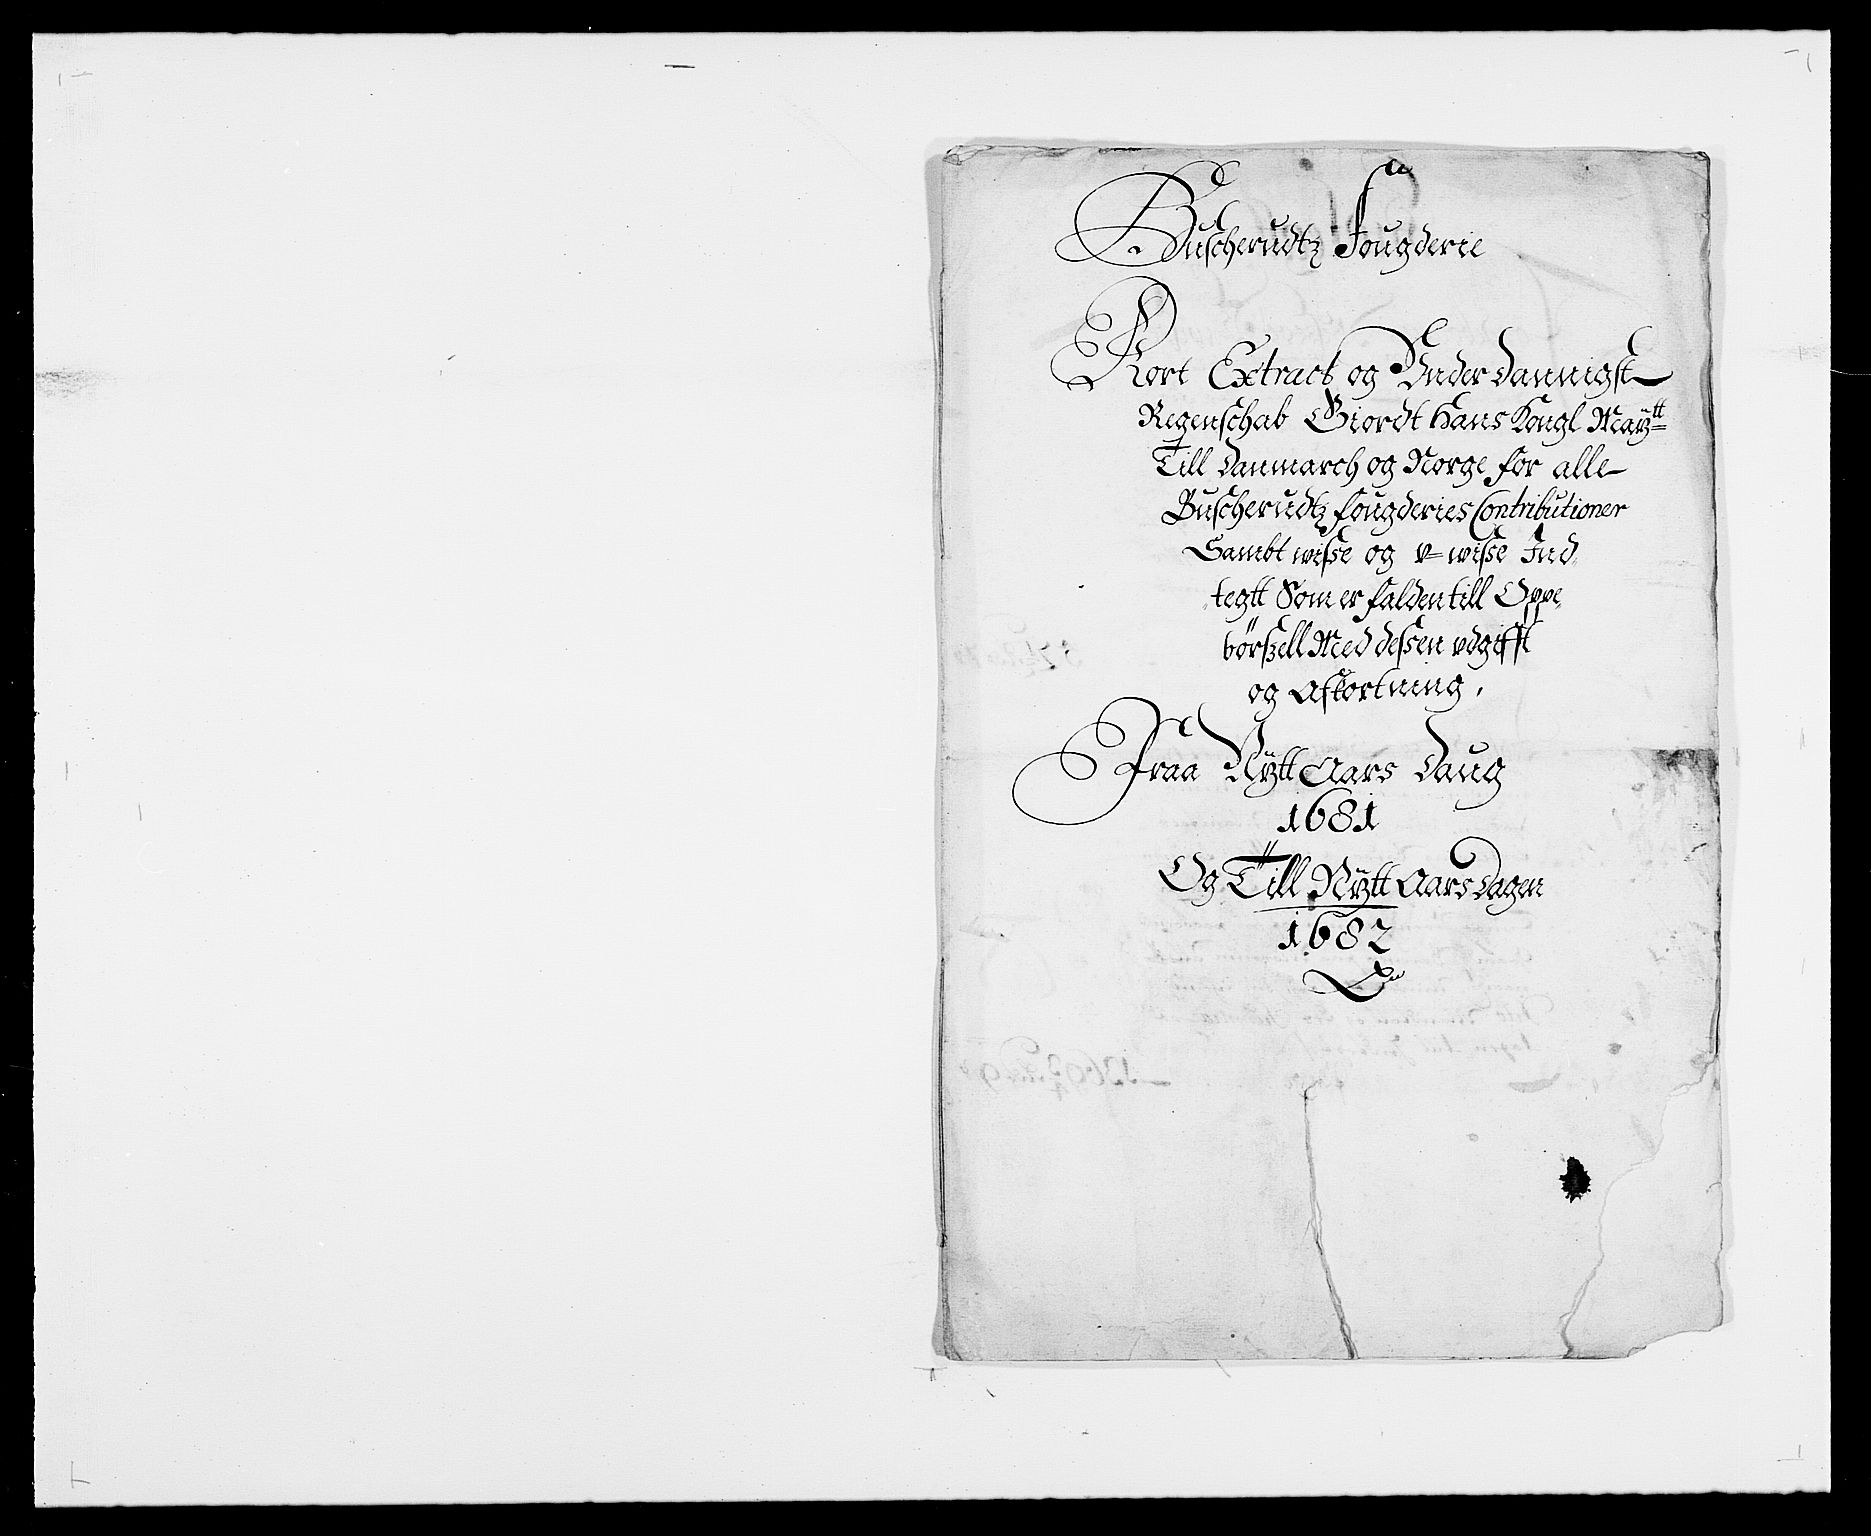 Buscherudtz Fougderie
Kort Extract og Vnderdannigst
Regenschab Giordt Hans Kongl Maÿtt
Till Danmarch og Norge for alle
Buscherudtz fougderies Contributioner
Sambt wisse og v=wisse Ind,
,tegtt Som er falden till Oppe,
börszell Med dessen vdgifft
og Afkortning,
Fraa Nÿtt Aars Daug
1681
Og Till Nÿtt Aars Dagen
1682